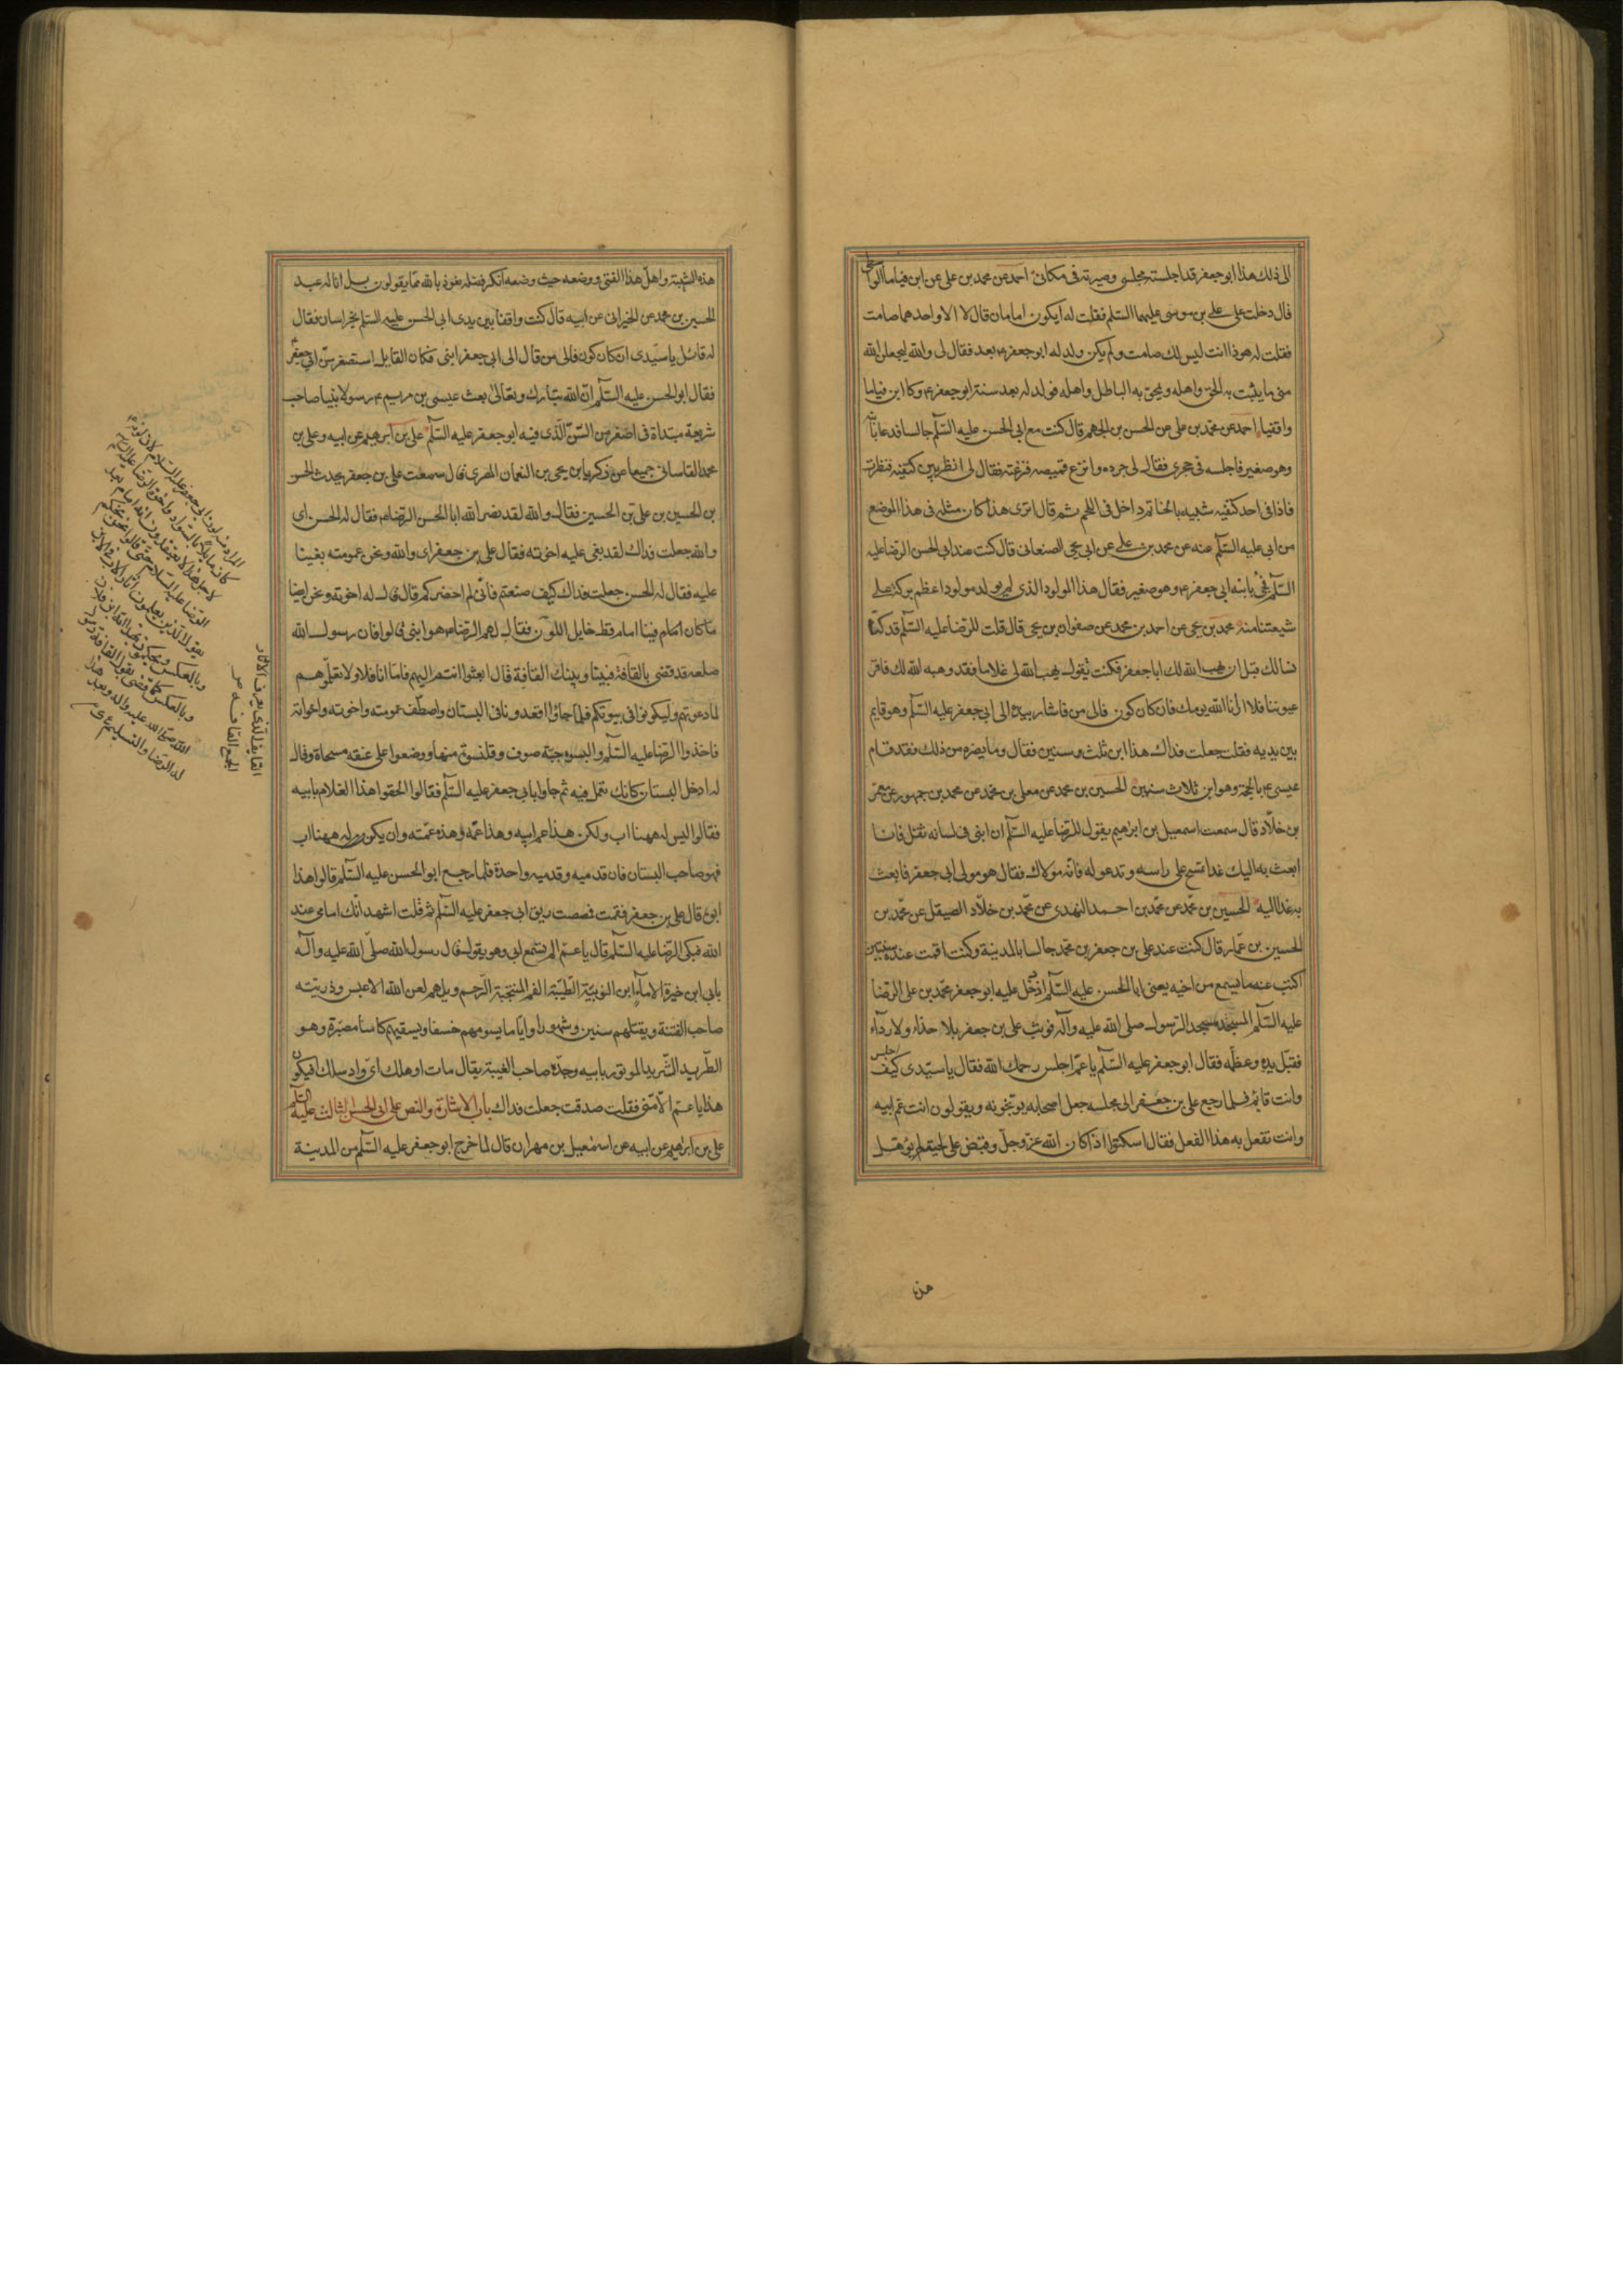 الى ذلك هذا ابو جعفر قد اجلسته مجلسى وصيرته فى مكانى احمد عن محمد بن على عن ابن قياما الواسطى
قال دخلت على على بن موسى عليهما السلم فقلت له ايكون امامان قال لا الا واحدهما صامت
فقلت له هوذا انت ليس لك صامت ولم يكن ولد له ابو جعفر ع بعد فقال لى والله ليجعلن الله
منى ما يثبت به الحق واهله ويمحق به الباطل واهله فولد له بعد سنة ابو جعفر ع وكان ابن قياما
واقفيا احمد عن محمد بن على عن الحسن بن الجهم قال كنت مع ابى الحسن عليه السلم جالسا فدعا بابنه
وهو صغير فاجلسه فى حجرى فقال لى جرده وانزع قميصه فنزعته فقال لى انظر بين كتفيه فنظرت
فاذا فى احد كتفيه شبيه بالخاتم داخل فى اللحم ثم قال اترى هذا كان مثله فى هذا الموضع
من ابى عليه السلم عنه عن محمد بن على عن ابى يحيى الصنعانى قال كنت عند ابى الحسن الرضا عليه
السلم فجئ بابنه ابى جعفر ع وهو صغير فقال هذا المولود الذى لم يولد مولود اعظم بركة على
شيعتنا منه محمد بن يحيى عن احمد بن محمد عن صفوان بن يحيى قال قلت للرضا عليه السلم قد كنا
نسالك قبل ان يهب الله لك ابا جعفر فكنت تقول يهب الله لى غلاما فقد وهبه الله لك فاقر
عيوننا فلا ارانا الله يومك فان كان كون فالى من فاشار بيده الى ابى جعفر عليه السلم وهو قايم
بين يديه فقلت جعلت فداك هذا ابن ثلث وسنين فقال وما يضره من ذلك فقد قام
عيسى ع بالحجة وهو ابن ثلاث سنين الحسين بن محمد عن معلى بن محمد عن محمد بن جمهور عن معمر
بن خلاد قال سمعت اسمعيل بن ابرهيم يقول للرضا عليه السلم ان ابنى فى لسانه ثقل فانا
ابعث به اليك غدا تمسح على راسه وتدعو له فانه مولاك فقال هو مولى ابى جعفر فابعث
به غدا اليه الحسين بن محمد عن محمد بن احمد النهدى عن محمد بن خلاد الصيقل عن محمد بن
الحسين بن عمار قال كنت عند على بن جعفر بن محمد جالسا بالمدينة وكنت اقمت عنده سنتين
اكتب عنه ما يسمع من اخيه يعنى ابا الحسن عليه السلم اذ دخل عليه ابو جعفر محمد بن على الرضا
عليه السلم المسجد مسجد الرسول صلى الله عليه وآله فوثب على بن جعفر بلا حذاء ولا رداء
فقبل يده وعظمه فقال ابو جعفر عليه السلم يا عم اجلس رحمك الله فقال يا سيدى كيف اجلس
وانت قائم فلما رجع على بن جعفر الى مجلسه جعل اصحابه يوبخونه ويقولون انت عم ابيه
وانت تفعل به هذا الفعل فقال اسكتوا اذا كان الله عز وجل وقبض على لحيته لم يؤهل
هذه
هذه الشيبة واهل هذا الفتى ووضعه حيث وضعه انكر فضله نعوذ بالله مما يقولون بل انا له عبد
الحسين بن محمد عن الخيرانى عن ابيه قال كنت واقفا بين يدى ابى الحسن عليه السلم بخراسان فقال
له قائل يا سيدى ان كان كون فالى من قال الى ابى جعفر ابنى فكان القايل استصغر سن ابى جعفر
فقال ابو الحسن عليه السلم ان الله تبارك وتعالى بعث عيسى بن مريم ع رسولا نبيا صاحب
شريعة مبتداة فى اصغر من السن الذى فيه ابو جعفر عليه السلم على بن ابرهيم عن ابيه وعلى بن
محمد القاسانى جميعا عن زكريا بن يحيى بن النعمان المصرى قال سمعت على بن جعفر يحدث الحسن
بن الحسين بن على بن الحسين فقال والله لقد نصر الله ابا الحسن الرضا ع فقال له الحسن اى
والله جعلت فداك لقد بغى عليه اخوته فقال على بن جعفر اى والله ونحن عمومته بغينا
عليه فقال له الحسن جعلت فداك كيف صنعتم فانى لم احضركم قال قال له اخوته ونحن ايضا
ما كان امام فينا امام قط حايل اللون فقال لهم الرضا ع هو ابنى قالوا فان رسول الله
صلعم قد قضى بالقافة فبيننا وبينك القافة قال ابعثوا انتم اليهم فاما انا فلا ولا تعلموهم
لما دعوتهم وليكونوا فى بيوتكم فلما جاؤا اقعدونا فى البستان واصطف عمومته واخوته واخواته
فاخذوا الرضا عليه السلم والبسوه جبة صوف وقلنسوة منها ووضعوا على عنقه مسحاة وقالوا
له ادخل البستان كانك تعمل فيه ثم جاوا بابى جعفر عليه السلم فقالوا الحقوا هذا الغلام بابيه
فقالوا ليس له ههنا اب ولكن هذا عم ابيه وهذا عمه وهذه عمته وان يكن له ههنا اب
فهو صاحب البستان فان قدميه وقدميه واحدة فلما رجع ابو الحسن عليه السلم قالوا هذا
ابوه قال على بن جعفر فقمت فمصصت ريق ابى جعفر عليه السلم ثم قلت اشهد انك امامى عند
الله فبكى الرضا عليه السلم قال يا عم الم تسمع ابى وهو يقول قال رسول الله صلى الله عليه وآله
بابى ابن خيرة الاماء ابن النوبية الطيبة الفم المنتجبة الرحم ويلهم لعن الله الاعبس وذريته
صاحب الفتنة ويقتلهم سنين وشهورا واياما يسومهم خسفا ويسقيهم كاسا مصبرة وهو
الطريد الشريد الموتور بابيه وجده صاحب الغيبة يقال مات او هلك اى واد سلك افيكون
هذا يا عم الا منى فقلت صدقت جعلت فداك باب الاشارة والنص على ابى الحسن الثالث عليه السلم
على بن ابرهيم عن ابيه عن اسمعيل بن مهران قال لما خرج ابو جعفر عليه السلم من المدينة
القايف الذى يعرف الآثار
الجمع القافة